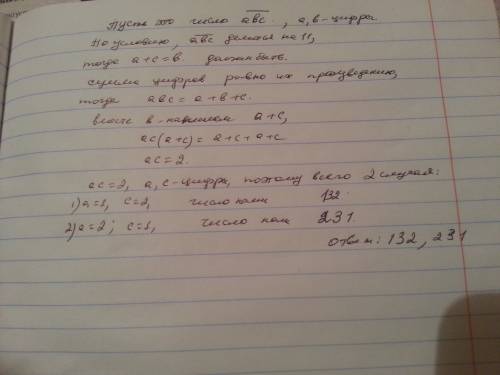 Пусть это число abc., a,b-цифры.
По условию, abc делится на 11,
тогда a+c=b. должен быть.
сумма цифров равно их произведению,
тогда abc = a+b+c.
вместо b-напишем a+c,
ac(a+c) = a+c+a+c
ac=2.
ac=2, a,c-цифры, поэтому всего 2 случая:
1) a=1, c=2, число 132.
2) a=2; c=1, число 231
ответ: 132, 231